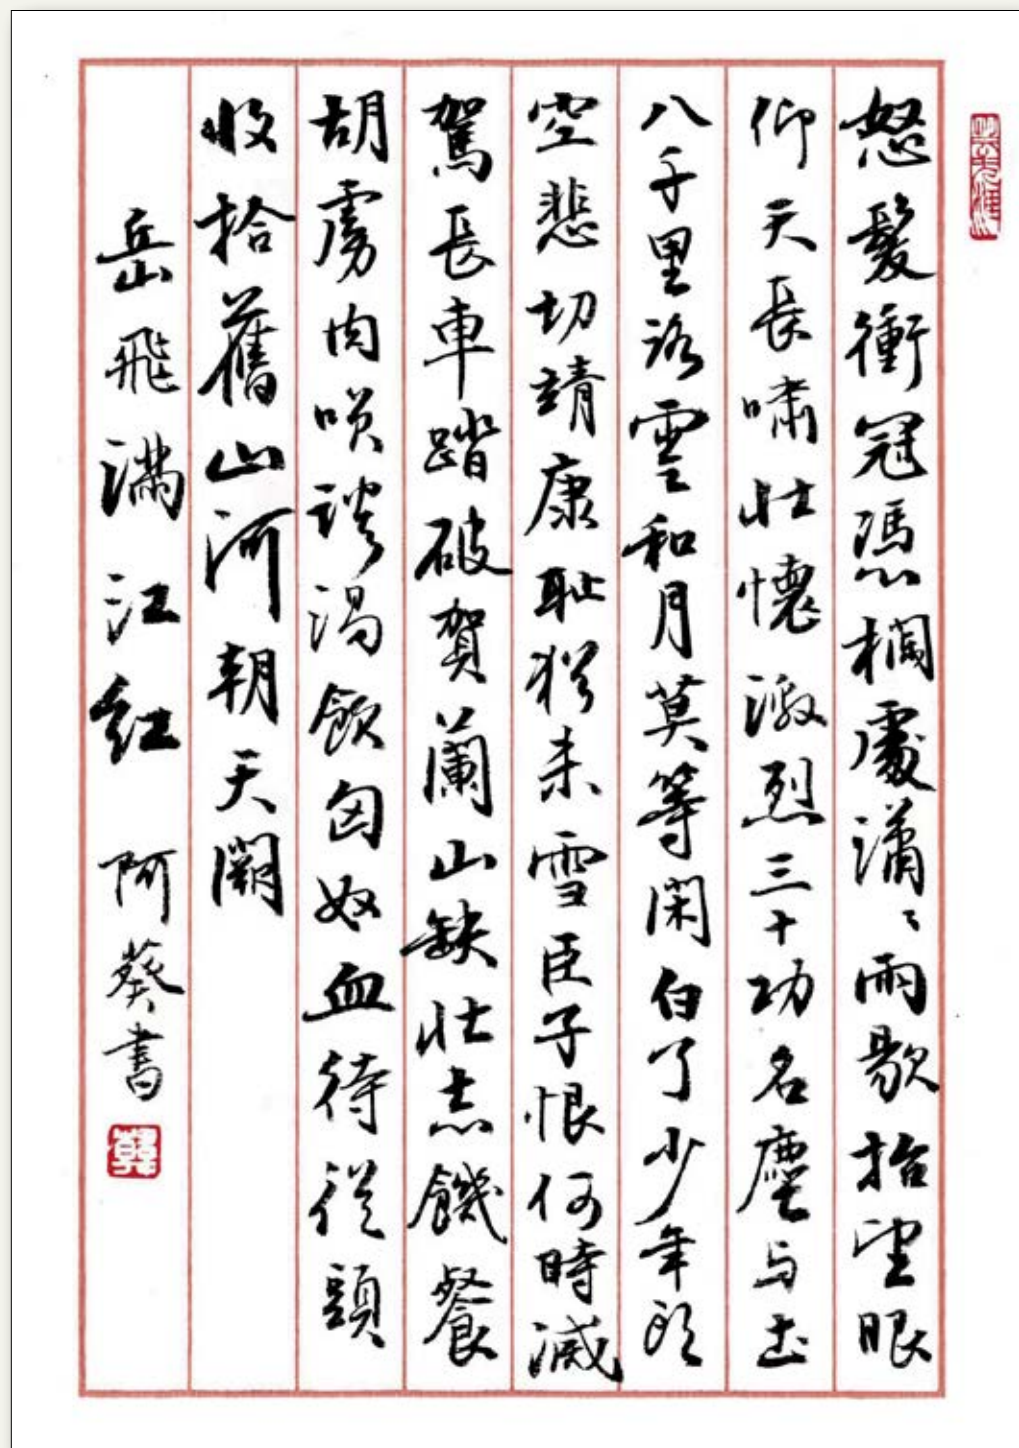 怒髮衝冠憑欄處瀟〻雨歇抬望眼
仰天長嘯壯懷激烈三十功名塵与土
八千里路雲和月莫等閑白了少年頭
空悲切靖康耻猶未雪臣子恨何時滅
駕長車踏破賀蘭山缺壯志饑餐
胡虜肉咲談渴飲匈奴血待從頭
收拾舊山河朝天闕
岳飛滿江紅 阿葵書
韓